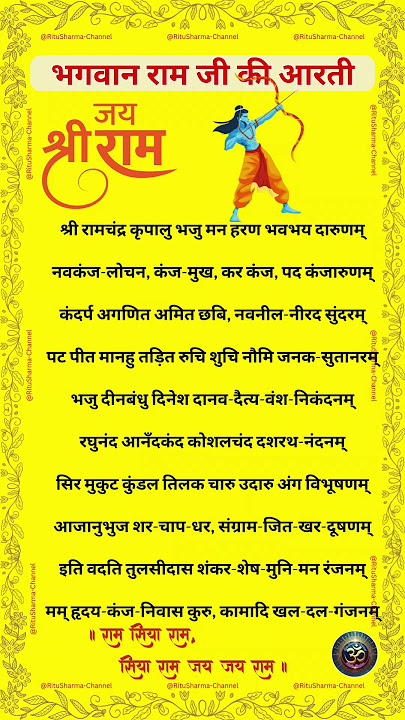 @RituSharma-Channel @RituSharma-Channel @RituSharma-Channel
भगवान राम जी की आरती
जय
श्री राम
@RituSharma-Channel
@RituSharma-Channel
श्री रामचंद्र कृपालु भजु मन हरण भवभय दारुणम्
नवकंज-लोचन, कंज-मुख, कर कंज, पद कंजारुणम्
कंदर्प अगणित अमित छबि, नवनील-नीरद सुंदरम्
पट पीत मानहु तड़ित रुचि शुचि नौमि जनक-सुतानरम्
@RituSharma-Channel
@RituSharma-Channel
भजु दीनबंधु दिनेश दानव-दैत्य-वंश-निकंदनम्
रघुनंद आनँदकंद कोशलचंद दशरथ-नंदनम्
सिर मुकुट कुंडल तिलक चारु उदारु अंग विभूषणम्
आजानुभुज शर-चाप-धर, संग्राम-जित-खर-दूषणम्
इति वदति तुलसीदास शंकर-शेष-मुनि-मन रंजनम्
मम् हृदय-कंज-निवास कुरु, कामादि खल-दल-गंजनम्
@RituSharma-Channel
@RituSharma-Channel
॥ राम सिया राम,
सिया राम जय जय राम ॥
ॐ
@RituSharma-Channel @RituSharma-Channel @RituSharma-Channel